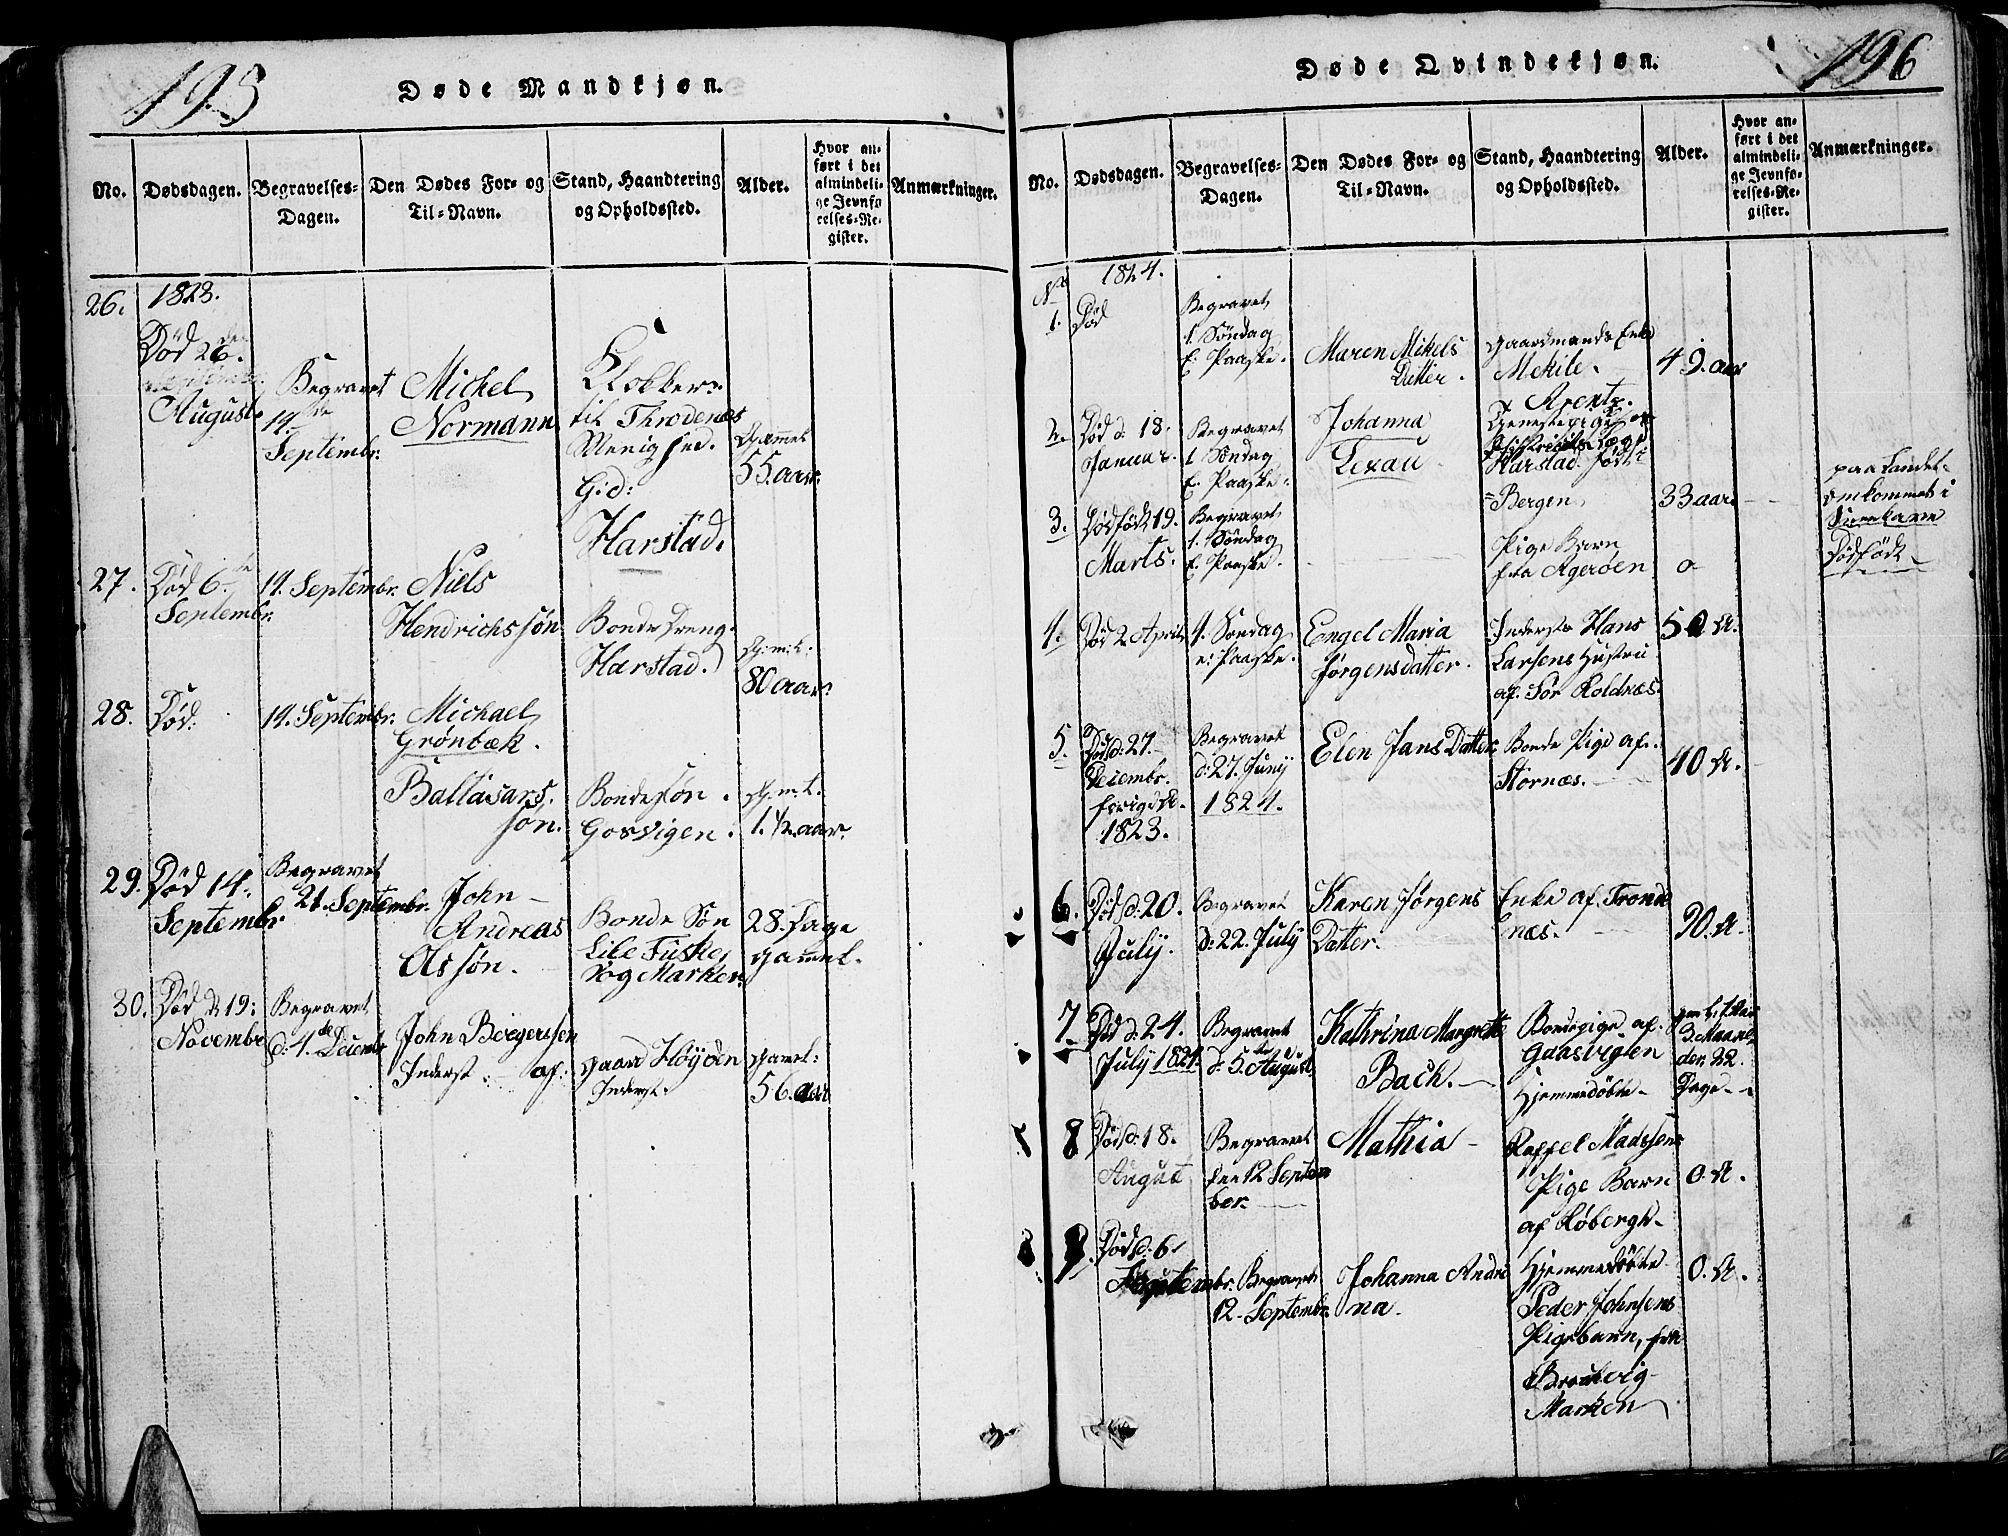 195
Døde Mandkjøn.
No.
Dødsdagen.
Begravelses-
Dagen.
Den Dødes For- og
Til-Navn.
Stand, Haandtering
og Opholdssted.
Alder.
Hvor an-
ført i det
almindeli-
ge Jevnfø
relses-Re-
gister.
Anmærkninger.
26.
1823.
Død 26 den
August.
Begravet
14 de
Septembr.
Michel
Normann
Klokker
til Throdenæs
Menighed.
Gid:
Harstad.
Gammel
55. aar.
27.
Død 6 te
Septembr.
14. Septembr.
Niels
Hendrichssøn
Bonde Dreng
Harstad.
g:m:l.
80 aar.
28.
Død.
14. Septembr.
Michael
Grönbæk.
Baltasars.
søn.
Bondesøn.
Gosvigen.
g:m:l.
1. 1/2. aar.
29.
Død 14.
Septembr.
Begravet
21. Septembr.
John
Andreas
Assön.
Bonde Søn
Lile Fuske
vog Marken.
28. Dage
gammel.
30.
Død d. 19:
Novembr
Begravet
d: 4 de Decembr
John Bergerssen
Inderst. af:
gaard Höyöen
Inderst.
gamel:
56. aar
196
Døde Qvindekjøn.
No.
Dødsdagen.
Begravelses-
Dagen.
Den Dødes For- og
Til-Navn.
Stand, Haandtering
og Opholdssted.
Alder.
Hvor an-
ført i det
almindeli-
ge Jevnfø-
relses-Re-
gister.
Anmærkninger.
No
1824.
1.
Død
Begravet
1. Söndag
E. Paaske.
Maren Mikels
Datter.
Gaardmands Enke
Mekile.
49. aar
2.
Død d. 18.
Januar.
Begravet
1 Søndag
E. Paaske.
Johanna
Lexau
Arentz.
Tienestepige
Harstad. født i
Bergen
33 aar
paa Landet
omkommet i
3.
Dødfödt 19.
Marts.
Begravet
1. Söndag
E. Paaske.
Pige Barn
fra Agerøen
0
Dødfödt
4.
Død 2 April
4. Söndag
e: Paaske.
Engel Maria
Jørgensdatter.
Inderste Hans
Larsens Hustru
af. Sör Roldnæs.
50 A.
5.
Død d: 27.
Decembr.
1823.
Begravet
d: 27. Juny
1824.
Elen Jans Datter
Bonde Pige af.
Stornæs.
40 A.
6.
Død d: 20.
July.
Begravet
d: 22. July
Karen Jørgens
Datter.
Enke af. Tronde
næs.
90. A.
7.
Død d: 24.
July 1824.
Begravet
d. 5. te August
Kathrina Margrethe
Bach.
Bondepige af.
Gaasvigten
Hjemmedöbte
3. Maane
den 22.
Dage
8
Død d: 18.
August
Begravet
den 12 Septem
ber.
Mathia
Roffel Madssens
Pige Barn
af Röbergh.
0. A.
9.
Død d: 6
Septembr.
Begravet
12. Septembr.
Johanna Andri
na.
Hjemmedöbte
Peder Johnsens
Pigebarn, fra
Marken
0. A.